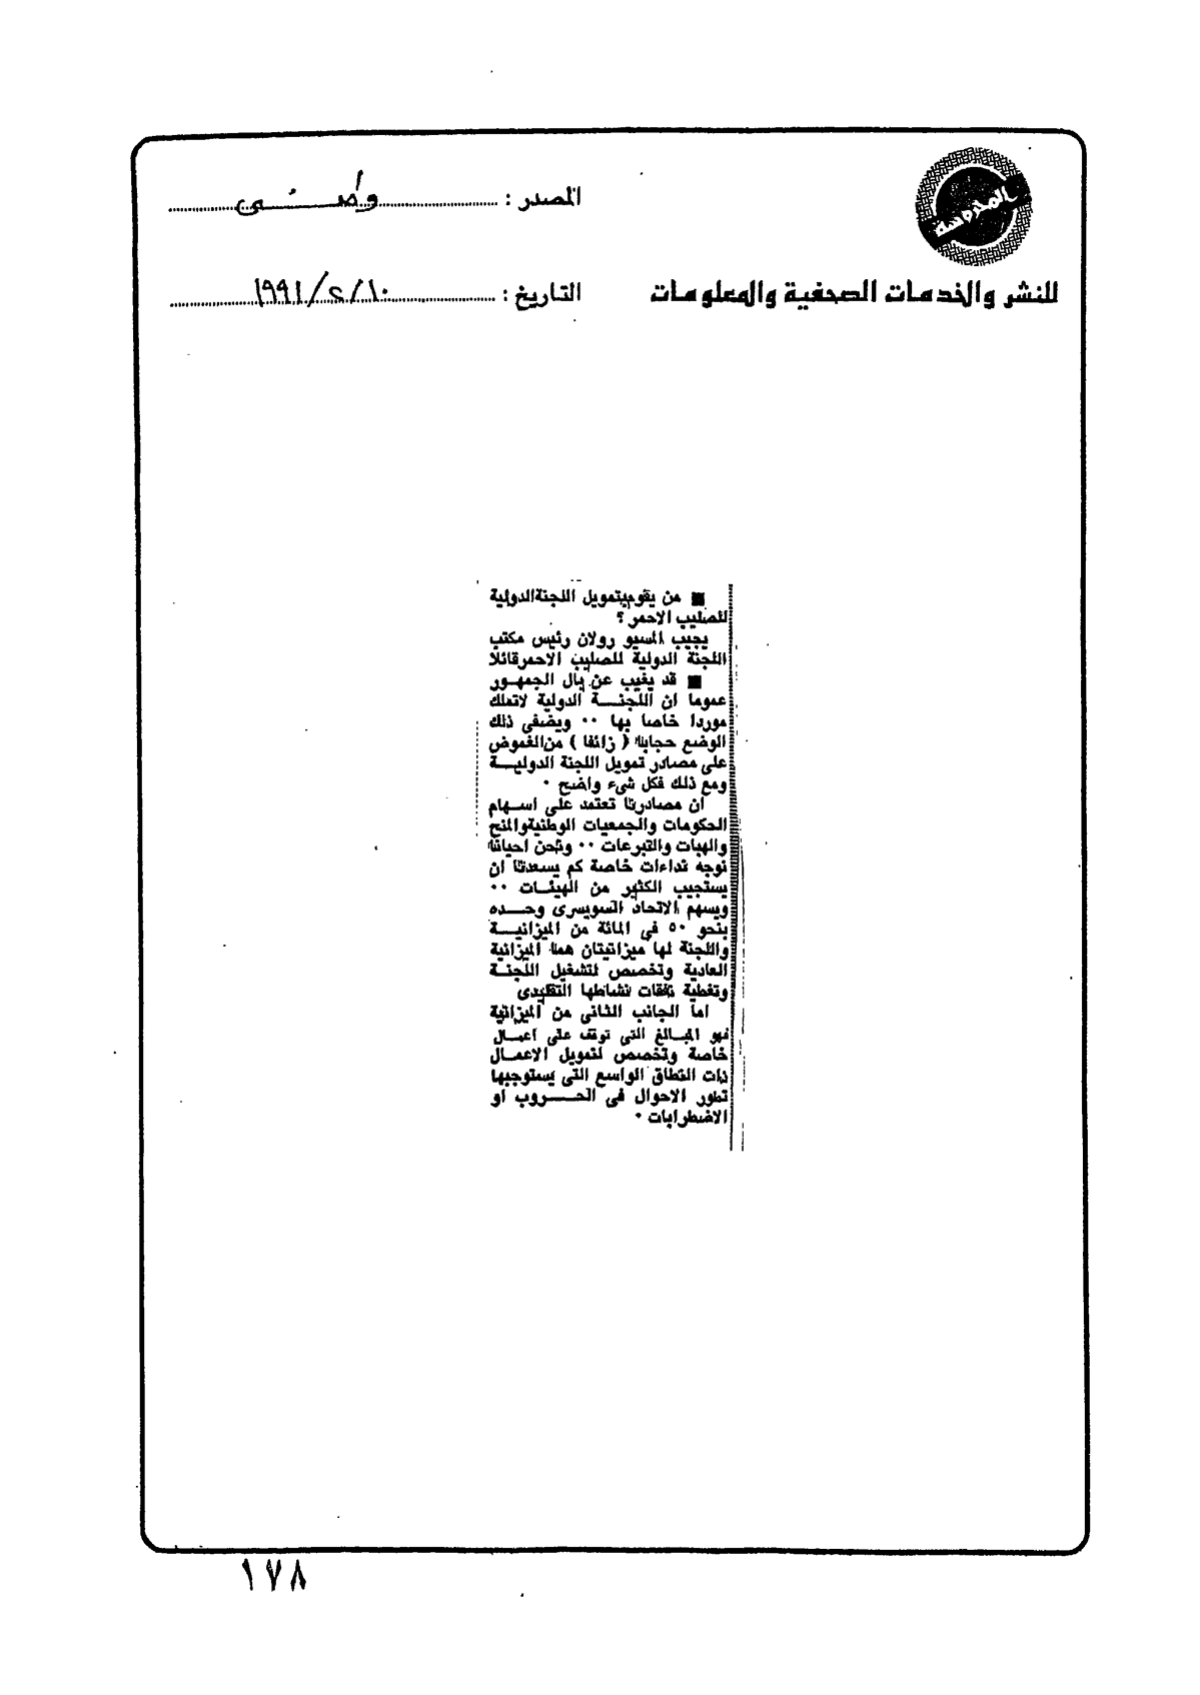 المدوسة
للنشر والخدمات الصحفية والمعلومات
المصدر :
التاريخ : ١٩٩١/٢/١٠
■ من يقوم بتمويل اللجنة الدولية
للصليب الاحمر ؟
يجيب المسيو رولان رئيس مكتب
اللجنة الدولية للصليب الاحمر قائلا
■ قد يغيب عن بال الجمهور
عموما ان اللجنة الدولية لاتملك
موردا خاصا بها ٠٠ ويضفى ذلك
الوضع حجابا ( زائفا ) من الغموض
على مصادر تمويل اللجنة الدولية
ومع ذلك فكل شىء واضح ٠
ان مصادرنا تعتمد على اسهام
الحكومات والجمعيات الوطنية والمنح
والهبات والتبرعات ٠٠ ونحن احيانا
نوجه نداءات خاصة كم يسعدنا ان
يستجيب الكثير من الهيئات ٠٠
ويسهم الاتحاد السويسرى وحده
بنحو ٥٠ فى المائة من الميزانية
واللجنة لها ميزانيتان هما الميزانية
العادية وتخصص لتشغيل اللجنة
وتغطية نفقات نشاطها التقليدى
اما الجانب الثانى من الميزانية
فهو المبالغ التى توقف على اعمال
خاصة وتخصص لتمويل الاعمال
ذات النطاق الواسع التى يستوجبها
تطور الاحوال فى الحروب او
الاضطرابات ٠
١٧٨